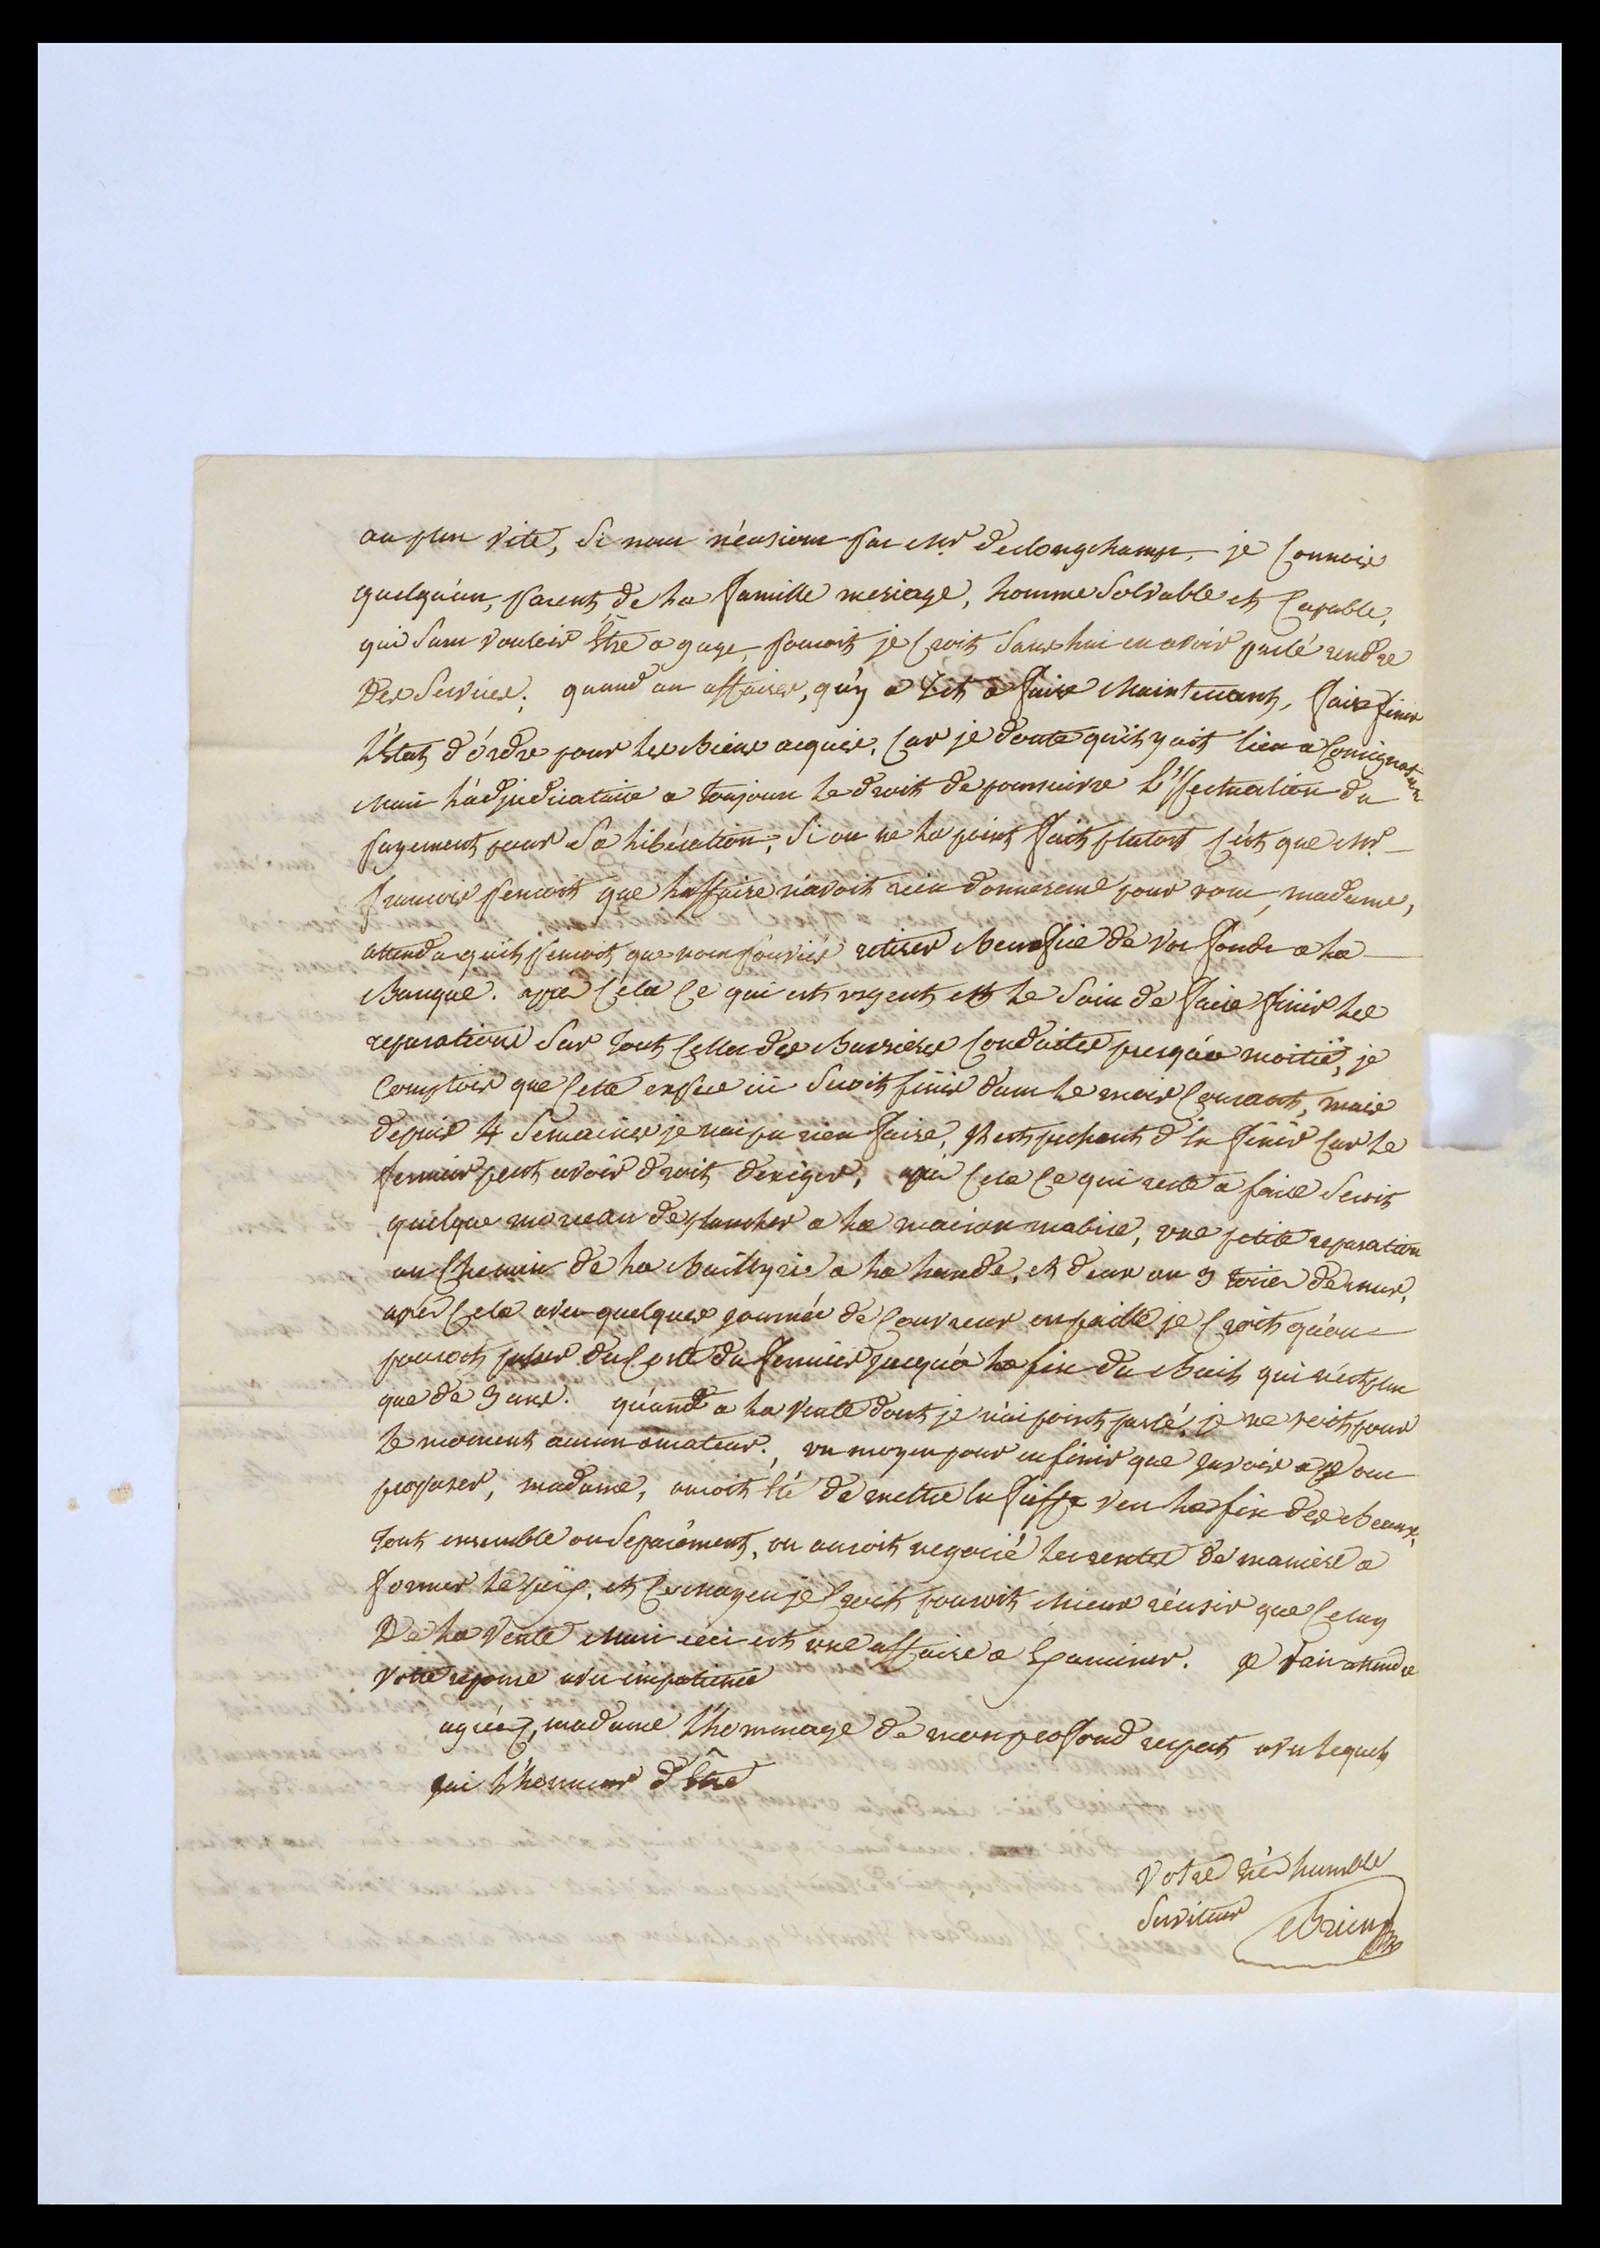 au plus vite, Si nous n'eusions pas Mr. deslongchamps, je Connois
quelqu'un, parent de la famille mesiage, homme Solvable et Capable,
qui Sans vouloir Être a gage, pouroit je Croit Sans lui en avoir parlé rendre
Des Services; quand au affaires, qu'y a t'il a faire Maintenant, faire finir
L'Etat d'órdre pour les Biens acquis, Car je doute qu'il y ait lieu a Consignation
Mais l'adjudicataire a toujours le droit de poursuivre L'Effectuation du
payement pour Sa libération, Si on ne la point fait plutost C'est que Mr.
francois pensoit que l'affaire n'avoit rien d'onnereux pour vous, madame,
attendu qu'il pensoit que vous pouviés retirer Benefice de vos fonds a la
Banque. après Cela Ce qui est urgent est le Soin de faire finir les
reparations Sur tout Celles des Barrieres Conduites jusqu'a moitié, je
Comptois que Cette espece ici Seroit finie dans le mois Courant, mais
depuis 4 Semaines je n'ai pu rien faire, Il est pressant d'en finir Car le
fermier peut avoir droit d'exiger; après Cela Ce qui reste a faire Seroit
quelque morceau de plancher a la maison mabire, une petite reparation
au Chemin de la Baillyrie a la lande, et deux ou 3 toises de mur,
après Cela avec quelques journée de Couvreur en paille je Croit qu'on
pouroit passer du Coté du fermier jusqu'a la fin du Bail qui n'est plus
que de 3 ans. quánd a la Vente dont je n'ai point parlé, je ne voit pour
le moment aucun amateur, un moyen pour en finir que j'avois a vous
proposer, madame, auroit Été de mettre en fieffe vers la fin des Beaux,
tout ensemble ou Séparément, on auroit negocié les rentes de maniere a
former le prix, et Ce moyen je Croit pouroit Mieux réusir que Celuy
De la Vente Mais ceci est une affaire a Examiner. Je vais attendre
votre reponse avec impatience
agréez, madame L'hommage de mon profond respect avec lequel
j'ai L'honneur d'Être
Votre très humble
Serviteur Brien